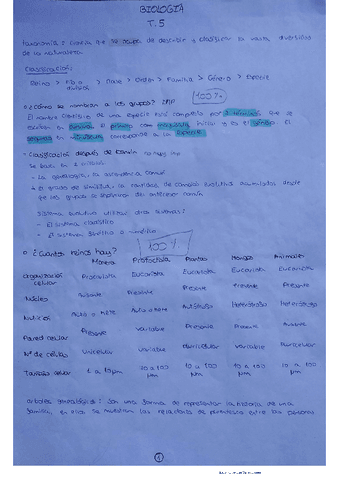 BIOLOGÍA
T. 5
Taxonomía: ciencia que se ocupa de describir y clasificar la vasta diversidad
de la naturaleza
Clasificación:
Reino > Filo > Clase > Orden > Familia > Género > Especie
división
¿Cómo se nombran a los grupos?
100%
El nombre científico de una especie está compuesto por 2 términos que se
escriben en el primero con mayúscula y es el género. El
segundo en minúscula corresponde a la especie.
Clasificación después de Darwin
Se basa en 2
- La genealogía, la ascendencia común
- El grado de similitud, la cantidad de cambio evolutivo acumulados desde
que los grupos se separaron del antecesor común
Sistema evolutivo utilizan otros sistemas?
- El sistema cladístico
- El sistema fenético o numérico
100%
¿Cuántos reinos hay?
Monera Protoctista Plantas Hongos Animales
Organización celular Procariota Eucariota Eucariota Eucariota Eucariota
Núcleo Ausente Presente Presente Presente Presente
Nutrición Auto o hete Auto o hete Autótrofo Heterótrofo Heterótrofo
Pared celular Presente Variable Presente Presente Ausente
Nº de células Unicelular Variable Pluricelular Variable Pluricelular
Tamaño celular 1 a 10 µm 10 a 100 µm 10 a 100 µm 10 a 100 µm 10 a 100 µm
Árboles genealógicos: son una forma de representar la historia de una
familia, en ellos se muestran las relaciones de parentesco entre las personas
1